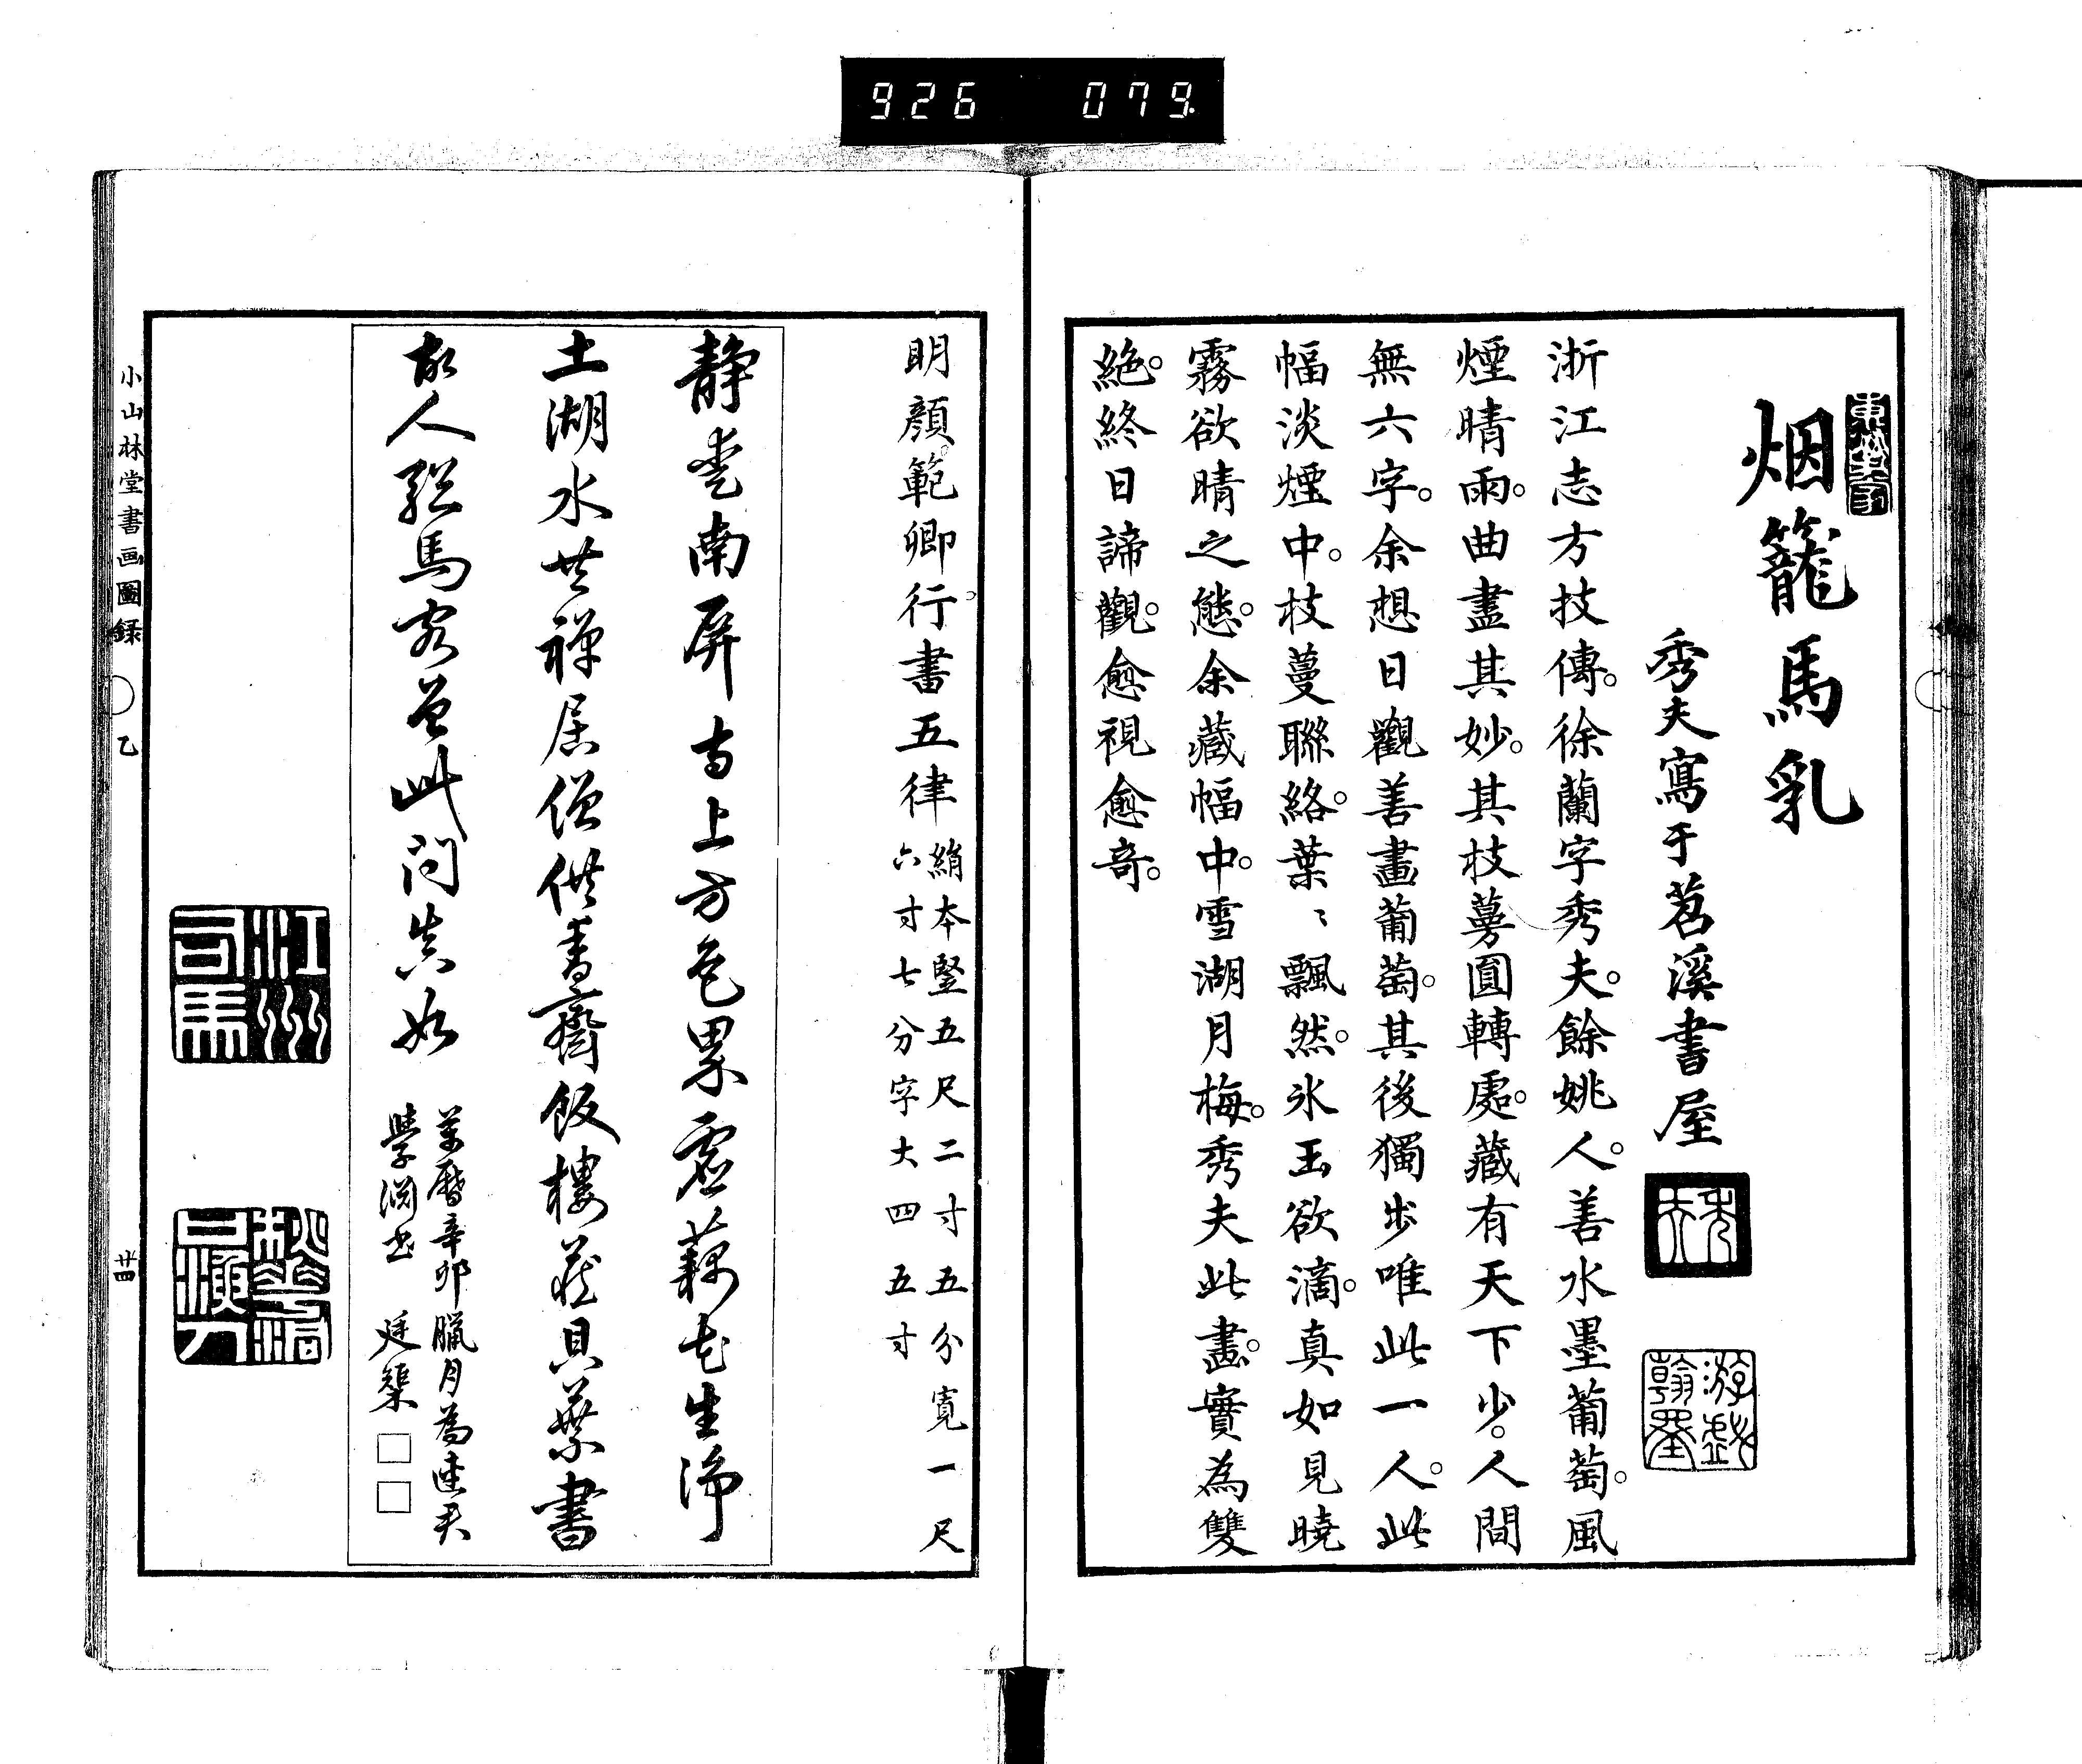 926 079
烟籠馬乳
秀夫寫于苕溪書屋
秀夫
游戲翰墨
浙江志方技傳。徐蘭字秀夫。餘姚人。善水墨葡萄。風
煙晴雨。曲盡其妙。其枝蔓圓轉處。藏有天下少。人間
無六字。余想日觀善畫葡萄。其後獨步唯此一人。此
幅淡煙中。枝蔓聯絡。葉〻飄然。氷玉欲滴。真如見曉
霧欲晴之態。余藏幅中。雪湖月梅。秀夫此畫。實為雙
絶。終日諦觀。愈視愈奇。
明顏範卿行書五律
絹本竪五尺二寸五分寬一尺
六寸七分字大四五寸
靜愛南屏寺上方色界虛藕花生淨
土湖水世禪居僧供香齋飯樓藏貝葉書
故人驄馬客曾此問真如
萬曆辛卯臘月為
學淵書 廷榘 □□
江州司馬
小山林堂書画圖録 乙
廿四